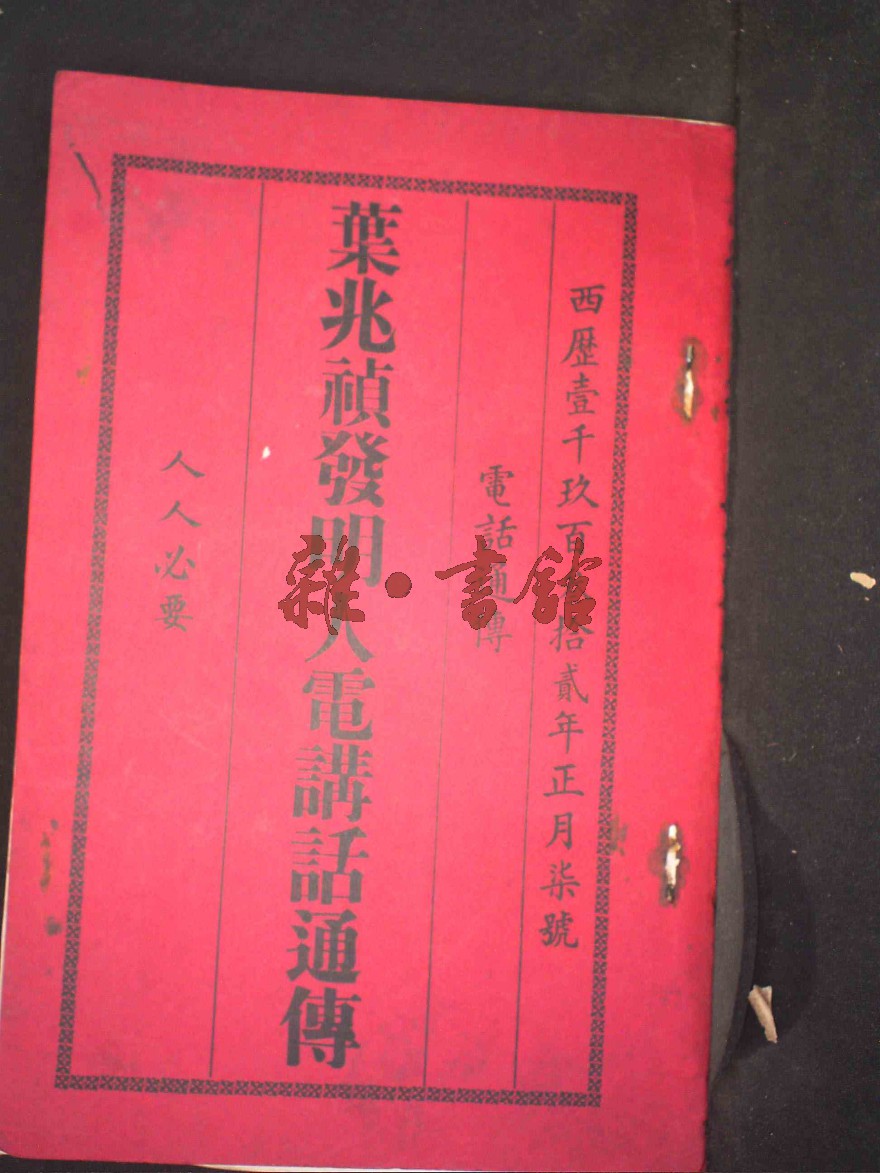 西歷壹千玖百壹拾貳年正月柒號
電話通傳
葉兆禎發明人電講話通傳
人人必要
雜·書館